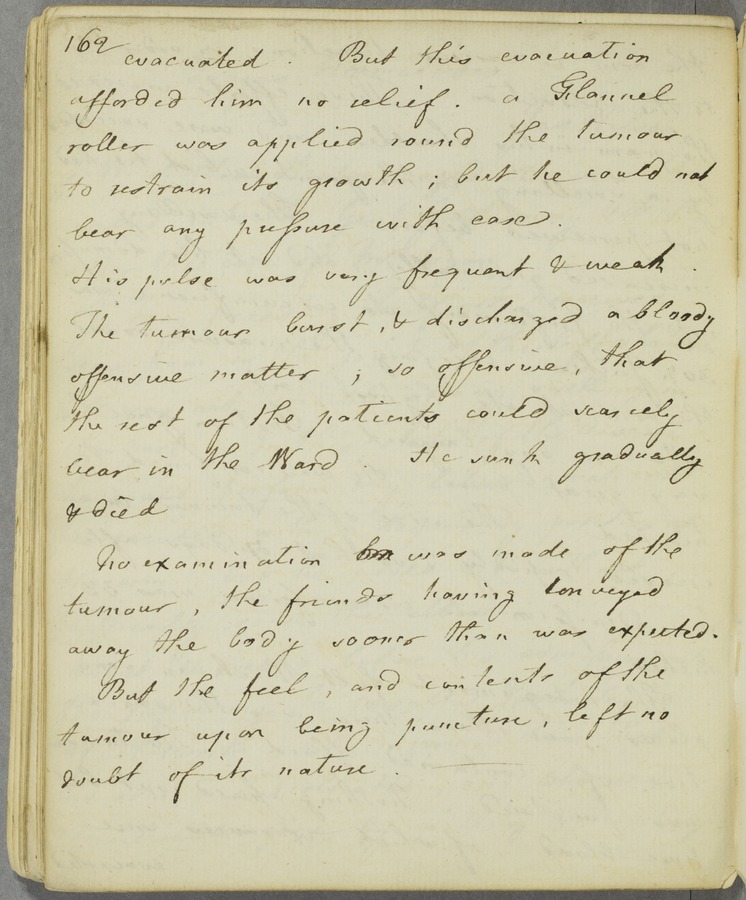 162
evacuated. But this evacuation
afforded him no relief. a Flannel
roller was applied round the tumour
to restrain its growth; but he could not
bear any pressure with ease.
His pulse was very frequent & weak.
The tumour burst, & discharged a bloody
offensive matter; so offensive, that
the rest of the patients could scarcely
bear in the Ward. He sunk gradually
& died
No examination was made of the
tumour, the friends having conveyed
away the body sooner than was expected.
But the feel, and contents of the
tumour upon being puncture, left no
doubt of its nature. —